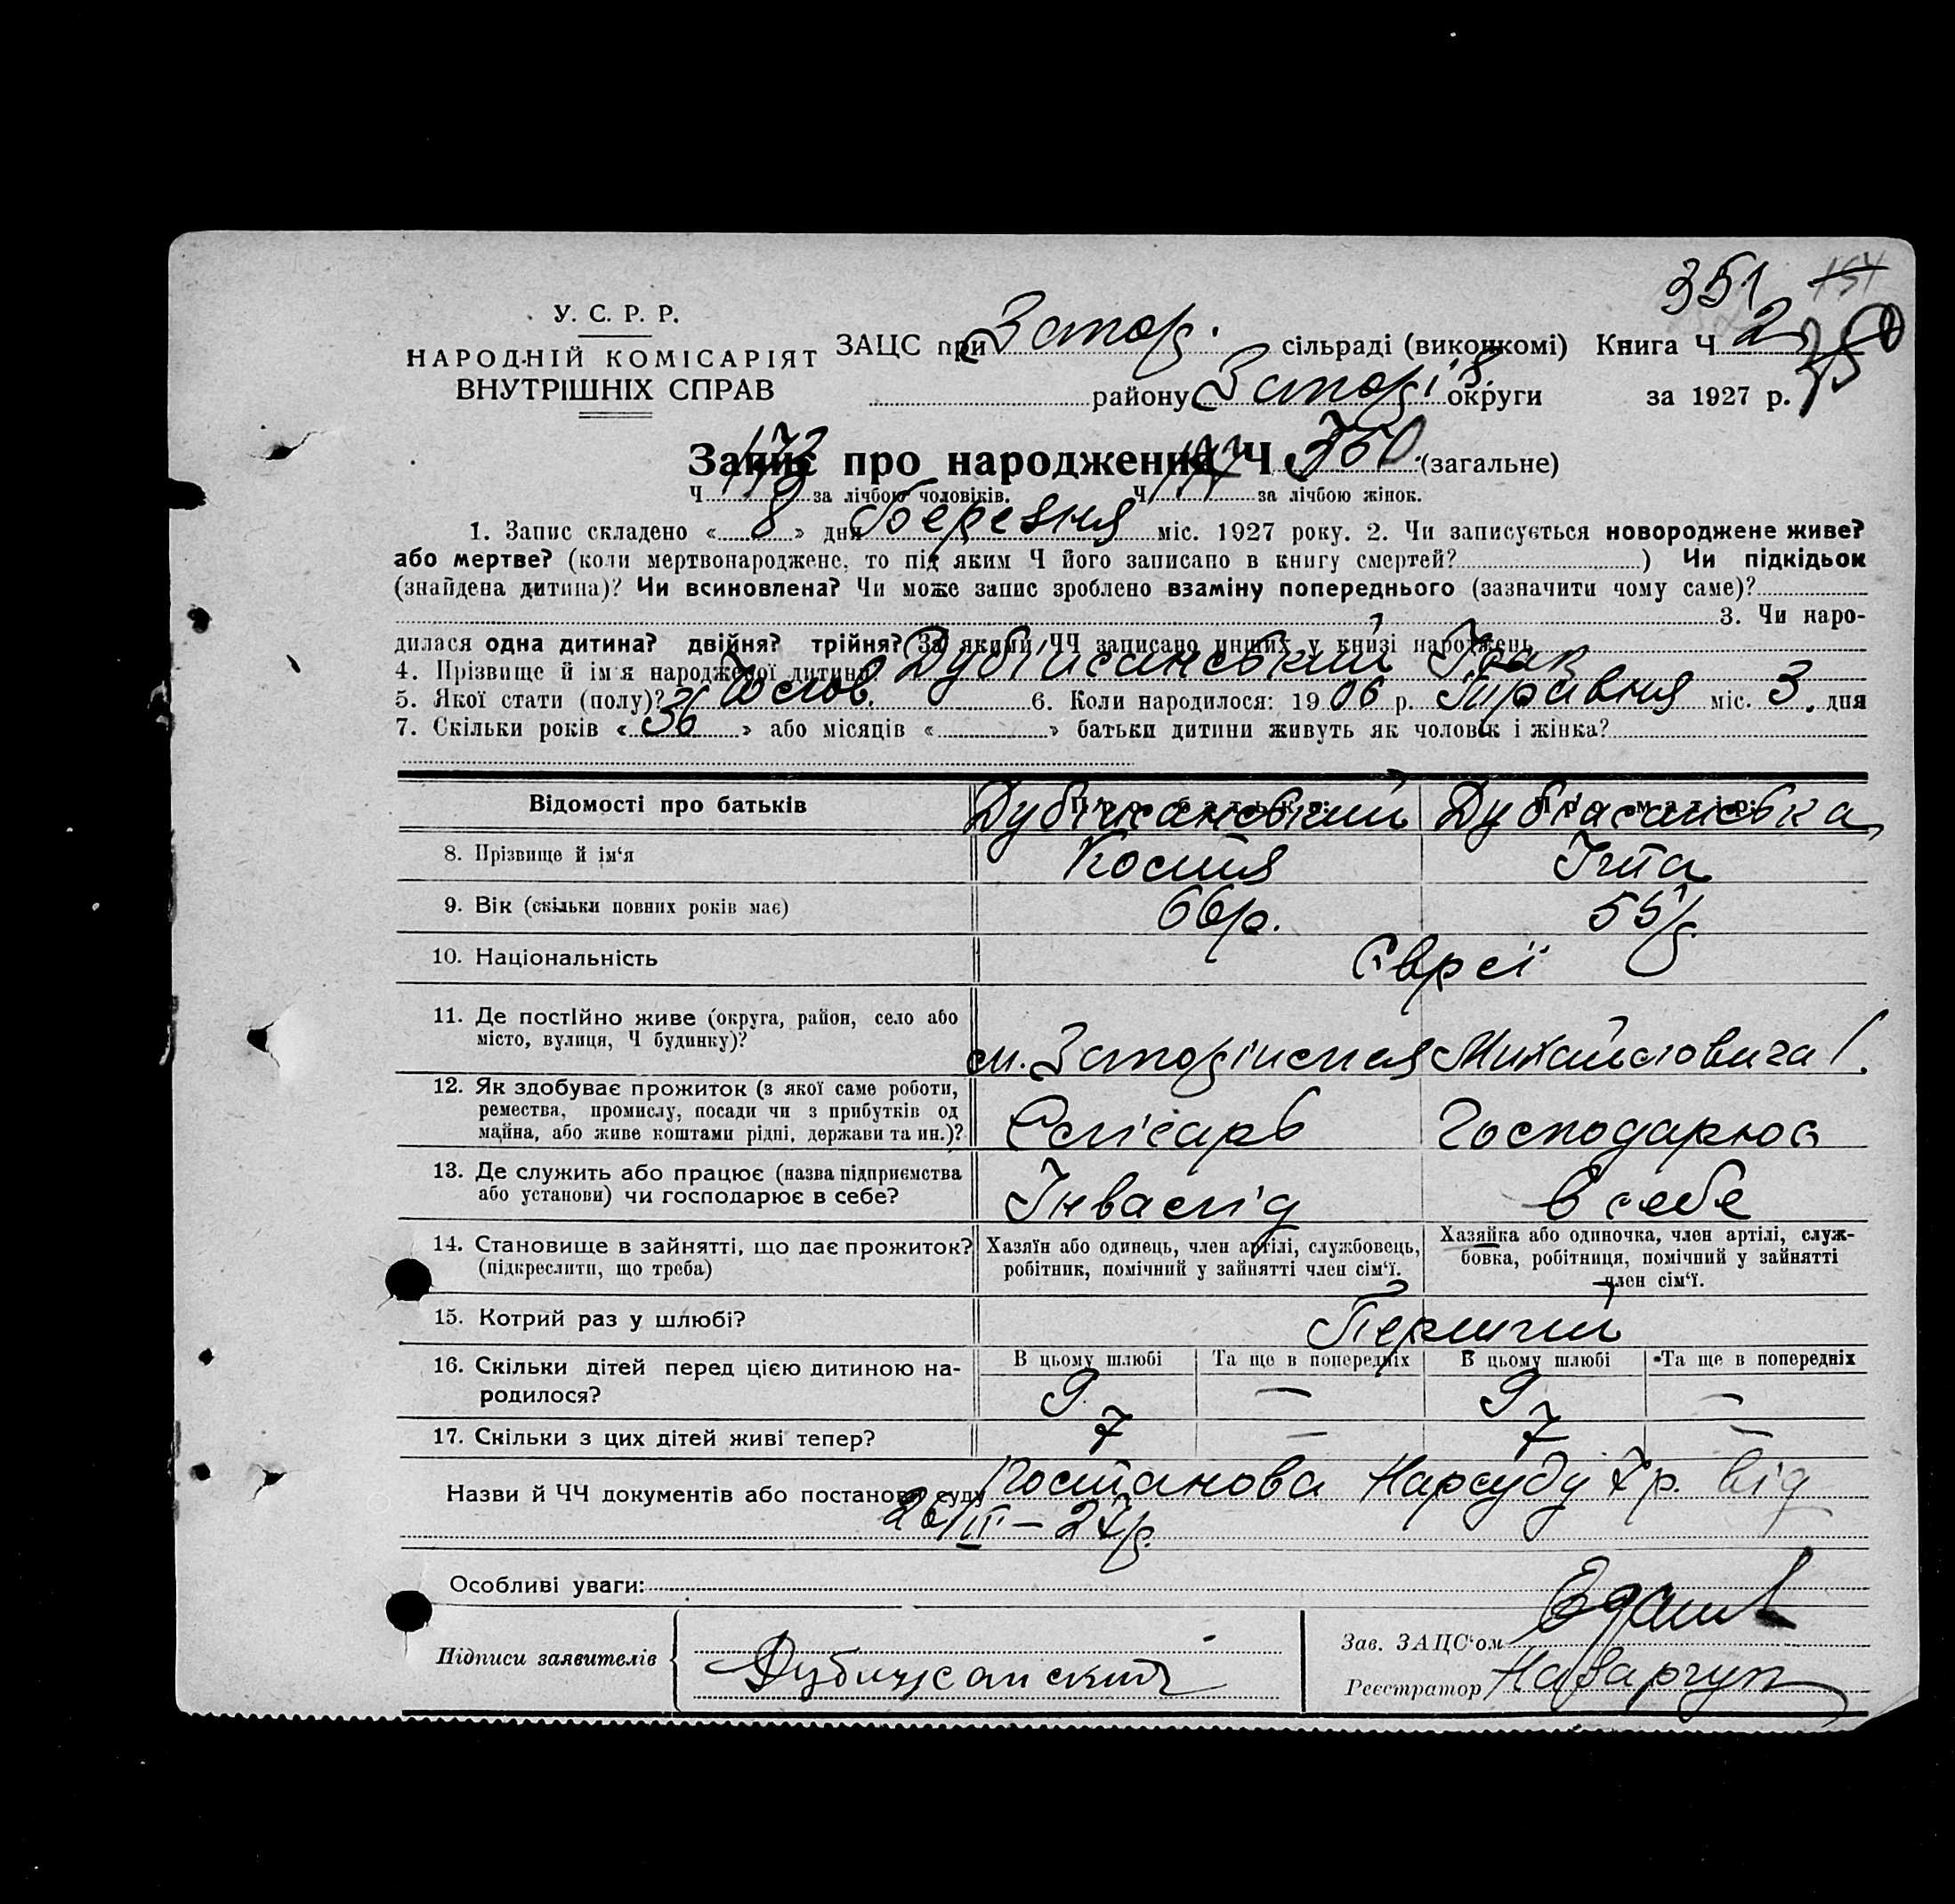 351 154
У. С. Р. Р.
НАРОДНІЙ КОМІСАРІЯТ
ВНУТРІШНІХ СПРАВ
ЗАЦС при Запор. сільраді (виконкомі) Книга Ч 2
району Запоріз. округи за 1927 р.
Запис про народження Ч 350 (загальне)
Ч 173 за лічбою чоловіків. Ч 177 за лічбою жінок.
1. Запис складено « 8 » дня березня міс. 1927 року. 2. Чи записується новороджене живе?
або мертве? (коли мертвонароджене, то під яким Ч його записано в книгу смертей? ) Чи підкідьок
(знайдена дитина)? Чи всиновлена? Чи може запис зроблено взаміну попереднього (зазначити чому саме)?
3. Чи наро-
дилася одна дитина? двійня? трійня? За якими ЧЧ записано инших у книзі народжень
4. Прізвище й ім'я народженої дитини Дубінсанський Ісак
5. Якої стати (полу)? Чолов. 6. Коли народилося: 1906 р. Травня міс. 3. дня
7. Скільки років « 36 » або місяців « » батьки дитини живуть як чоловік і жінка?
Відомості про батьків Про батька: Про матір:
8. Прізвище й ім'я Дубінсанський Костя Дубінсанська Іта
9. Вік (скільки повних років має) 66 р. 55 р.
10. Національність Євреї
11. Де постійно живе (округа, район, село або
місто, вулиця, Ч будинку)? м. Запоріжжя Михайловича 1.
12. Як здобуває прожиток (з якої саме роботи,
ремества, промислу, посади чи з прибутків од
майна, або живе коштами рідні, держави та ин.)? Слісарь Господарює
13. Де служить або працює (назва підприємства
або установи) чи господарює в себе? Інвалід в себе
14. Становище в зайнятті, що дає прожиток?
(підкреслити, що треба)
Хазяїн або одинець, член артілі, службовець,
робітник, помічний у зайнятті член сім'ї.
Хазяйка або одиночка, член артілі, служ-
бовка, робітниця, помічний у зайнятті
член сім'ї.
15. Котрий раз у шлюбі? Перший
В цьому шлюбі Та ще в попередніх В цьому шлюбі Та ще в попередніх
16. Скільки дітей перед цією дитиною на-
родилося? 9 — 9 —
17. Скільки з цих дітей живі тепер? 7 — 7 —
Назви й ЧЧ документів або постанова суду Постанова Нарсуду 7 р. від
26/II – 27 р.
Особливі уваги:
Підписи заявителів Дубинсанский
Зав. ЗАЦС'ом
Реєстратор